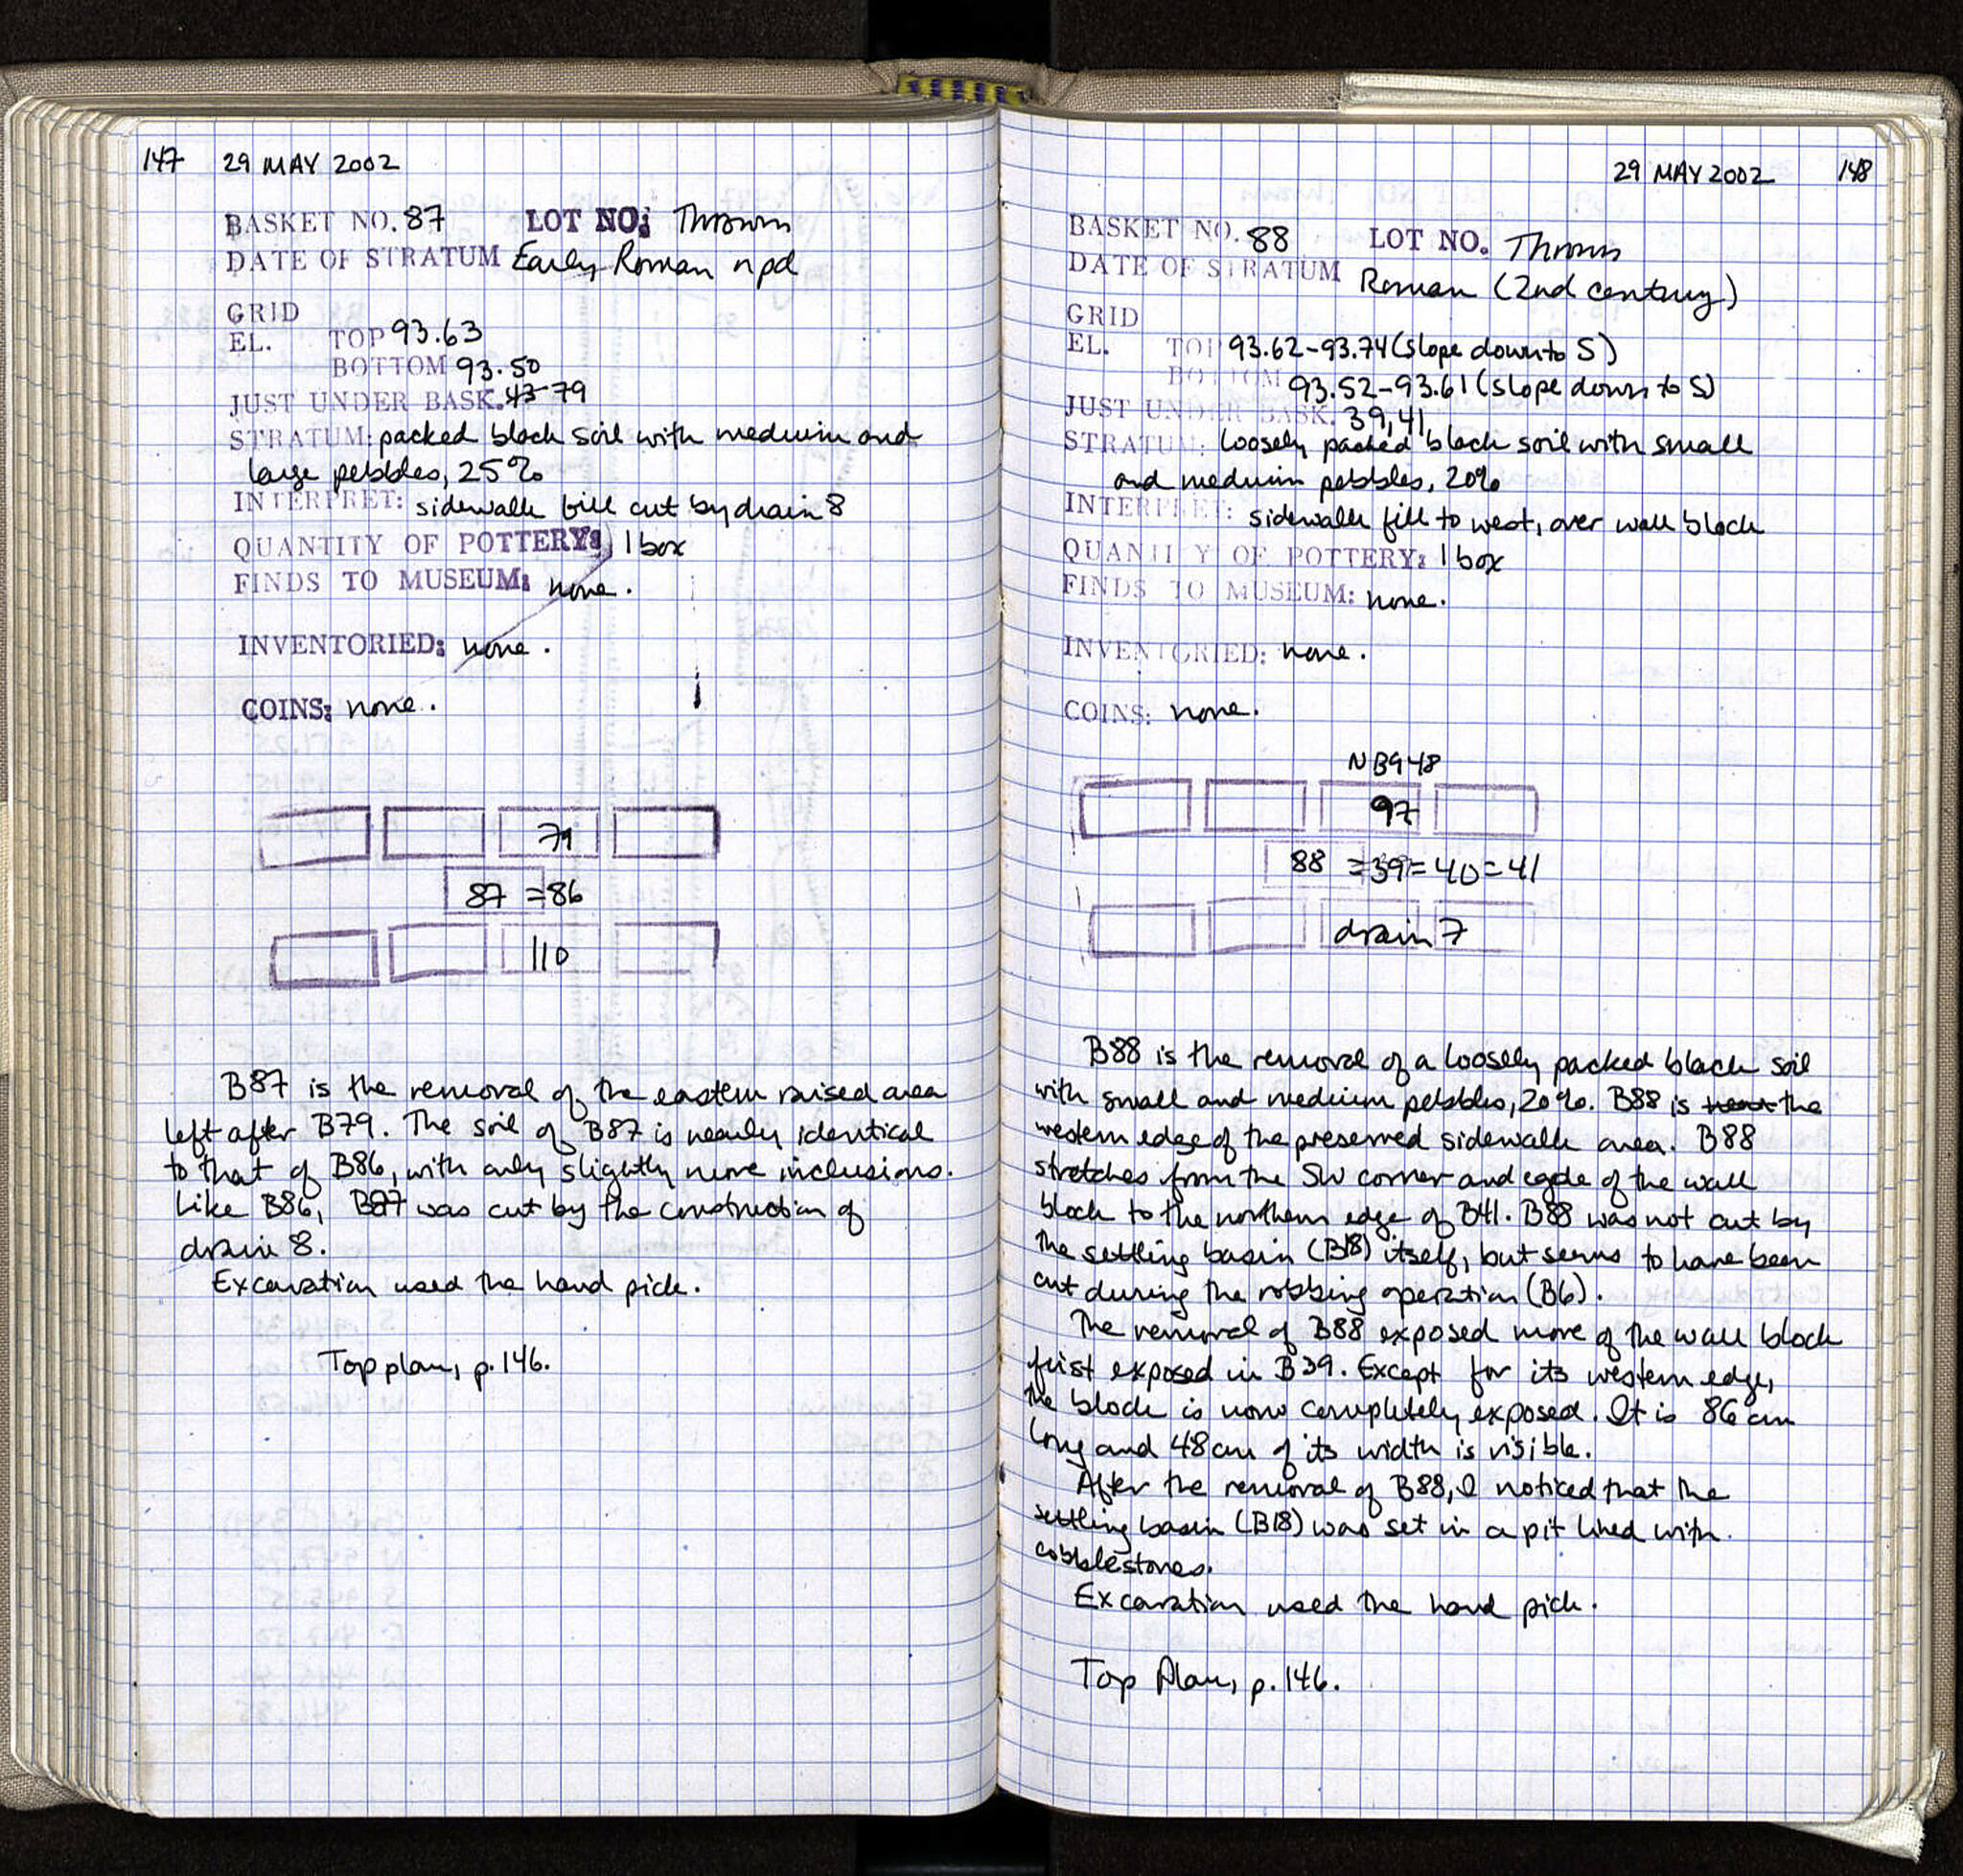 147 29 MAY 2002
BASKET NO. 87 LOT NO: Thrown
DATE OF STRATUM Early Roman npd
GRID
EL. TOP 93.63
BOTTOM 93.50
JUST UNDER BASK. 79
STRATUM: packed black soil with medium and
large pebbles, 25%
INTERPRET: sidewalk fill cut by drain 8
QUANTITY OF POTTERY: 1 box
FINDS TO MUSEUM: none.
INVENTORIED: none.
COINS: none.
79
87 =86
110
B87 is the removal of the eastern raised area
left after B79. The soil of B87 is nearly identical
to that of B86, with only slightly more inclusions.
Like B86, B87 was cut by the construction of
drain 8.
Excavation used the hand pick.
Top plan, p.146.
29 MAY 2002 148
BASKET NO. 88 LOT NO. Thrown
DATE OF STRATUM Roman (2nd century)
GRID
EL. TOP 93.62-93.74 (slope down to S)
BOTTOM 93.52-93.61 (slope down to S)
JUST UNDER BASK. 39, 41
STRATUM: loosely packed black soil with small
and medium pebbles, 20%
INTERPRET: sidewalk fill to west, over wall block
QUANTITY OF POTTERY: 1 box
FINDS TO MUSEUM: none.
INVENTORIED: none.
COINS: none.
NB948
97
88 =39=40=41
drain 7
B88 is the removal of a loosely packed black soil
with small and medium pebbles, 20%. B88 is the
western edge of the preserved sidewalk area. B88
stretches from the SW corner and egde of the wall
block to the northern edge of B41. B88 was not cut by
the settling basin (B18) itself, but seems to have been
cut during the robbing operation (B6).
The removal of B88 exposed more of the wall block
first exposed in B39. Except for its western edge,
the block is now completely exposed. It is 86 cm
long and 48cm of its width is visible.
After the removal of B88, I noticed that the
settling basin (B18) was set in a pit lined with
cobblestones.
Excavation used the hand pick.
Top Plan, p.146.